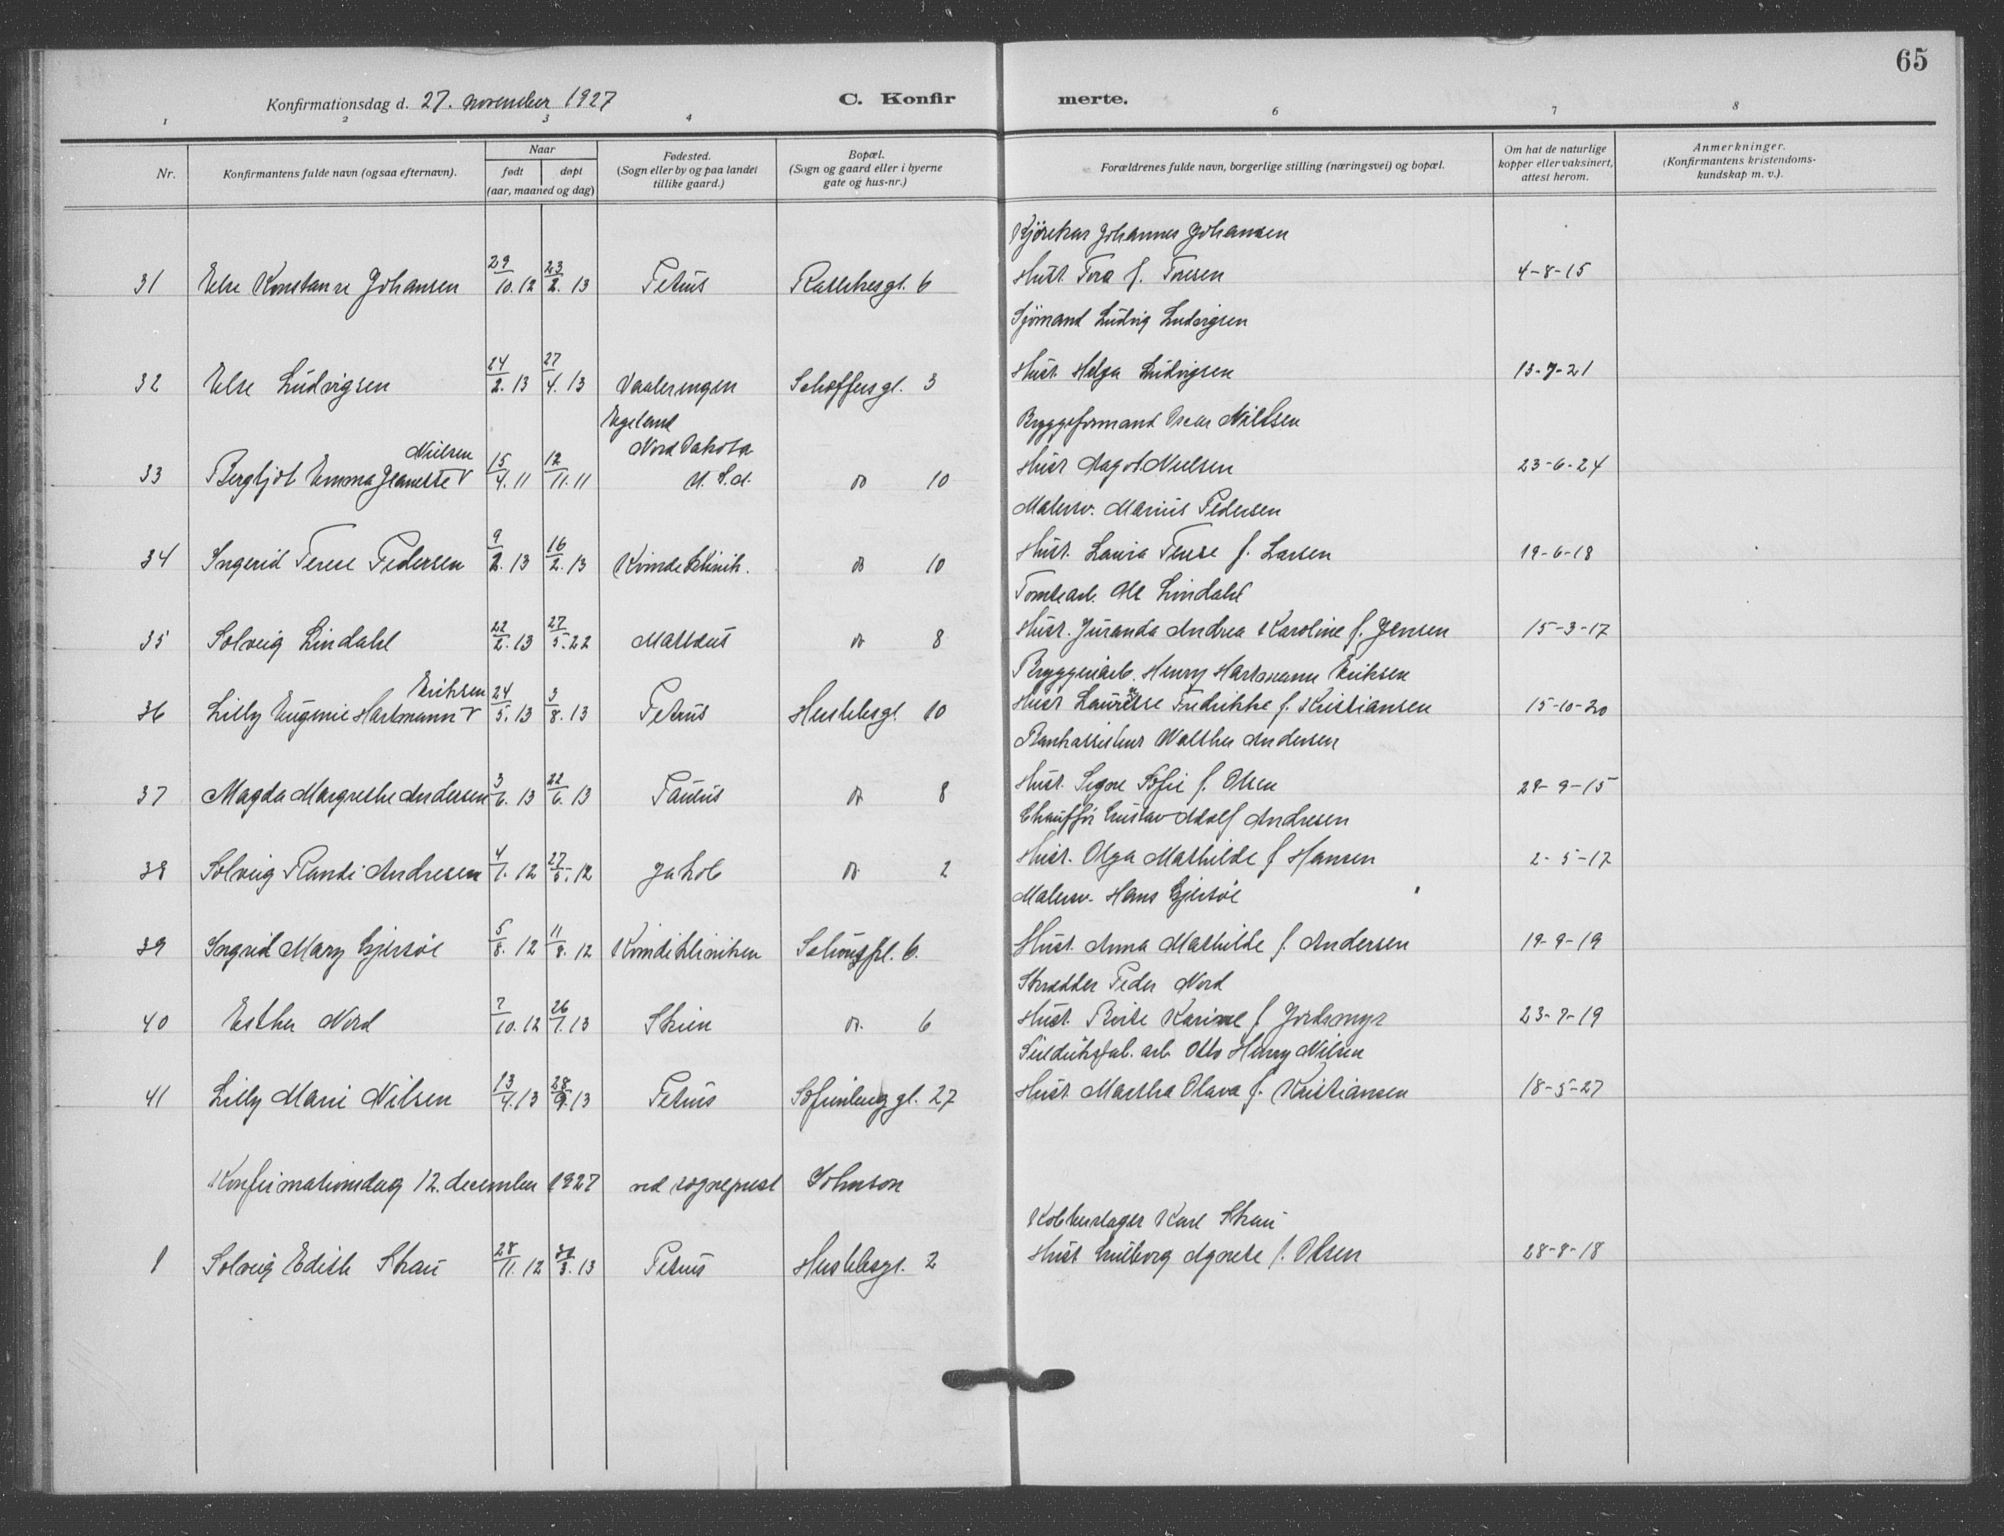 65
Konfirmationsdag d. 27. november 1927
C. Konfirmerte.
1 2 3 4 6 7 8
Nr.
Konfirmantens fulde navn (ogsaa efternavn).
Naar
født døpt
(aar, maaned og dag)
Fødested.
(Sogn eller by og paa landet
tillike gaard.)
Bopæl.
(Sogn og gaard eller i byerne
gate og hus-nr.)
Forældrenes fulde navn, borgerlige stilling (næringsvei) og bopæl.
Om hat de naturlige
kopper eller vaksinert,
attest herom.
Anmerkninger.
(Konfirmantens kristendoms-
kundskap m. v.).
Kjørekar Johannes Johansen
31 Else Konstanse Johansen 29/10. 12 23/2. 13 Petrus Rathkesgt. 6 Hust. Tora f. Toresen 4-8-15
Sjømand Ludvig Ludvigsen
32 Else Ludvigsen 24/2. 13 27/4. 13 Vaalerengen Schøffersgt. 3 Hust. Helga Ludvigsen 13-7-21
Egeland
Bryggeformand Oscar Nielsen
Nielsen Nord Dakota
33 Bergljot Emma Jeanette V 15/4. 11 12/11. 11 U.S.A. do 10 Hust. Nielsen 23-6-24
Malersv. Marius Pedersen
34 Ingerid Terese Pedersen 9/2. 13 16/2. 13 Kvindeklinik. do 10 Hust. Laura Terese f. Larsen 19-6-18
Tomtearb. Ole Lindahl
35 Solveig Lindahl 22/2. 13 27/5. 22 Matteus do 8 Hust. Juranda Andrea Karoline f. Jensen 15-3-17
Bryggeriarb. Henry Hartmann Eriksen
Eriksen
36 Lilly Eugenie Hartmann V 24/5. 13 3/8. 13 Petrus Heslebsgt. 10 Hust. Fredrikke f. Kristiansen 15-10-20
Bankassistent Walther Andersen
37 Magda Margrethe Andersen 3/6. 13 22/6. 13 Paulus do 8 Hust. Signe Sofie f. Olsen 29-9-15
Chauffør Gustav Adolf Andresen
38 Solveig Randi Andresen 4/1. 12 27/5. 12 Jakob do. 2 Hust. Olga Mathilde f Hansen 2-5-17
Malersv. Hans Gjersøe
39 Ingrid Mary Gjersøe 5/8. 12 11/8. 12 Kvindekliniken Schouspl. 6. Hust. Anna Mathilde f. Andersen 19-9-19
Skrædder Peder Nord
40 Esther Nord 7/10. 12 26/1. 13 Skien do. 6 Hust. Berte Karine f. Jordsmyr 23-7-19
arb. Otto Henry Nilsen
41 Lilly Marie Nilsen 13/4. 13 28/9. 13 Petrus Sofienberggt. 27 Hust. Martha Olava f. Kristiansen 18-5-27
Konfirmationsdag 12. december 1927 ved sogneprest Johnson
Karl Skau
1 Solveig Edith Skau 28/11. 12 /3. 13 Petrus Heslebsgt. 2 Hust. Agnete f. Olsen 28-8-18